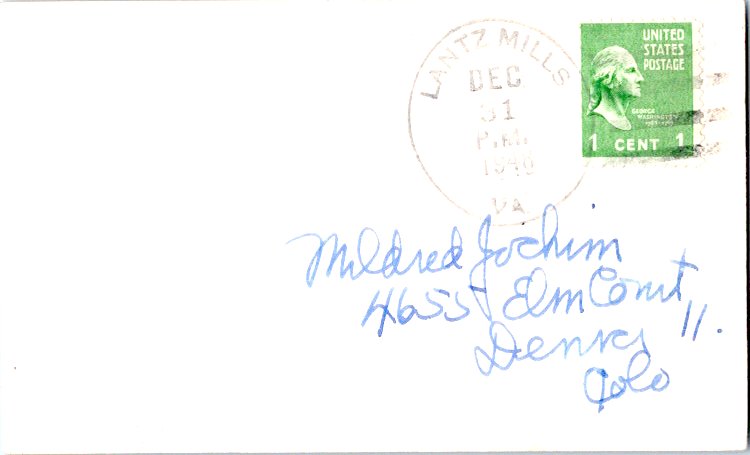 LANTZ MILLS
DEC
31
P.M.
VA
UNITED
STATES
POSTAGE
GEORGE
WASHINGTON
1 CENT 1
Mildred Jochim
4655 Elm Court
Denver 11.
Colo